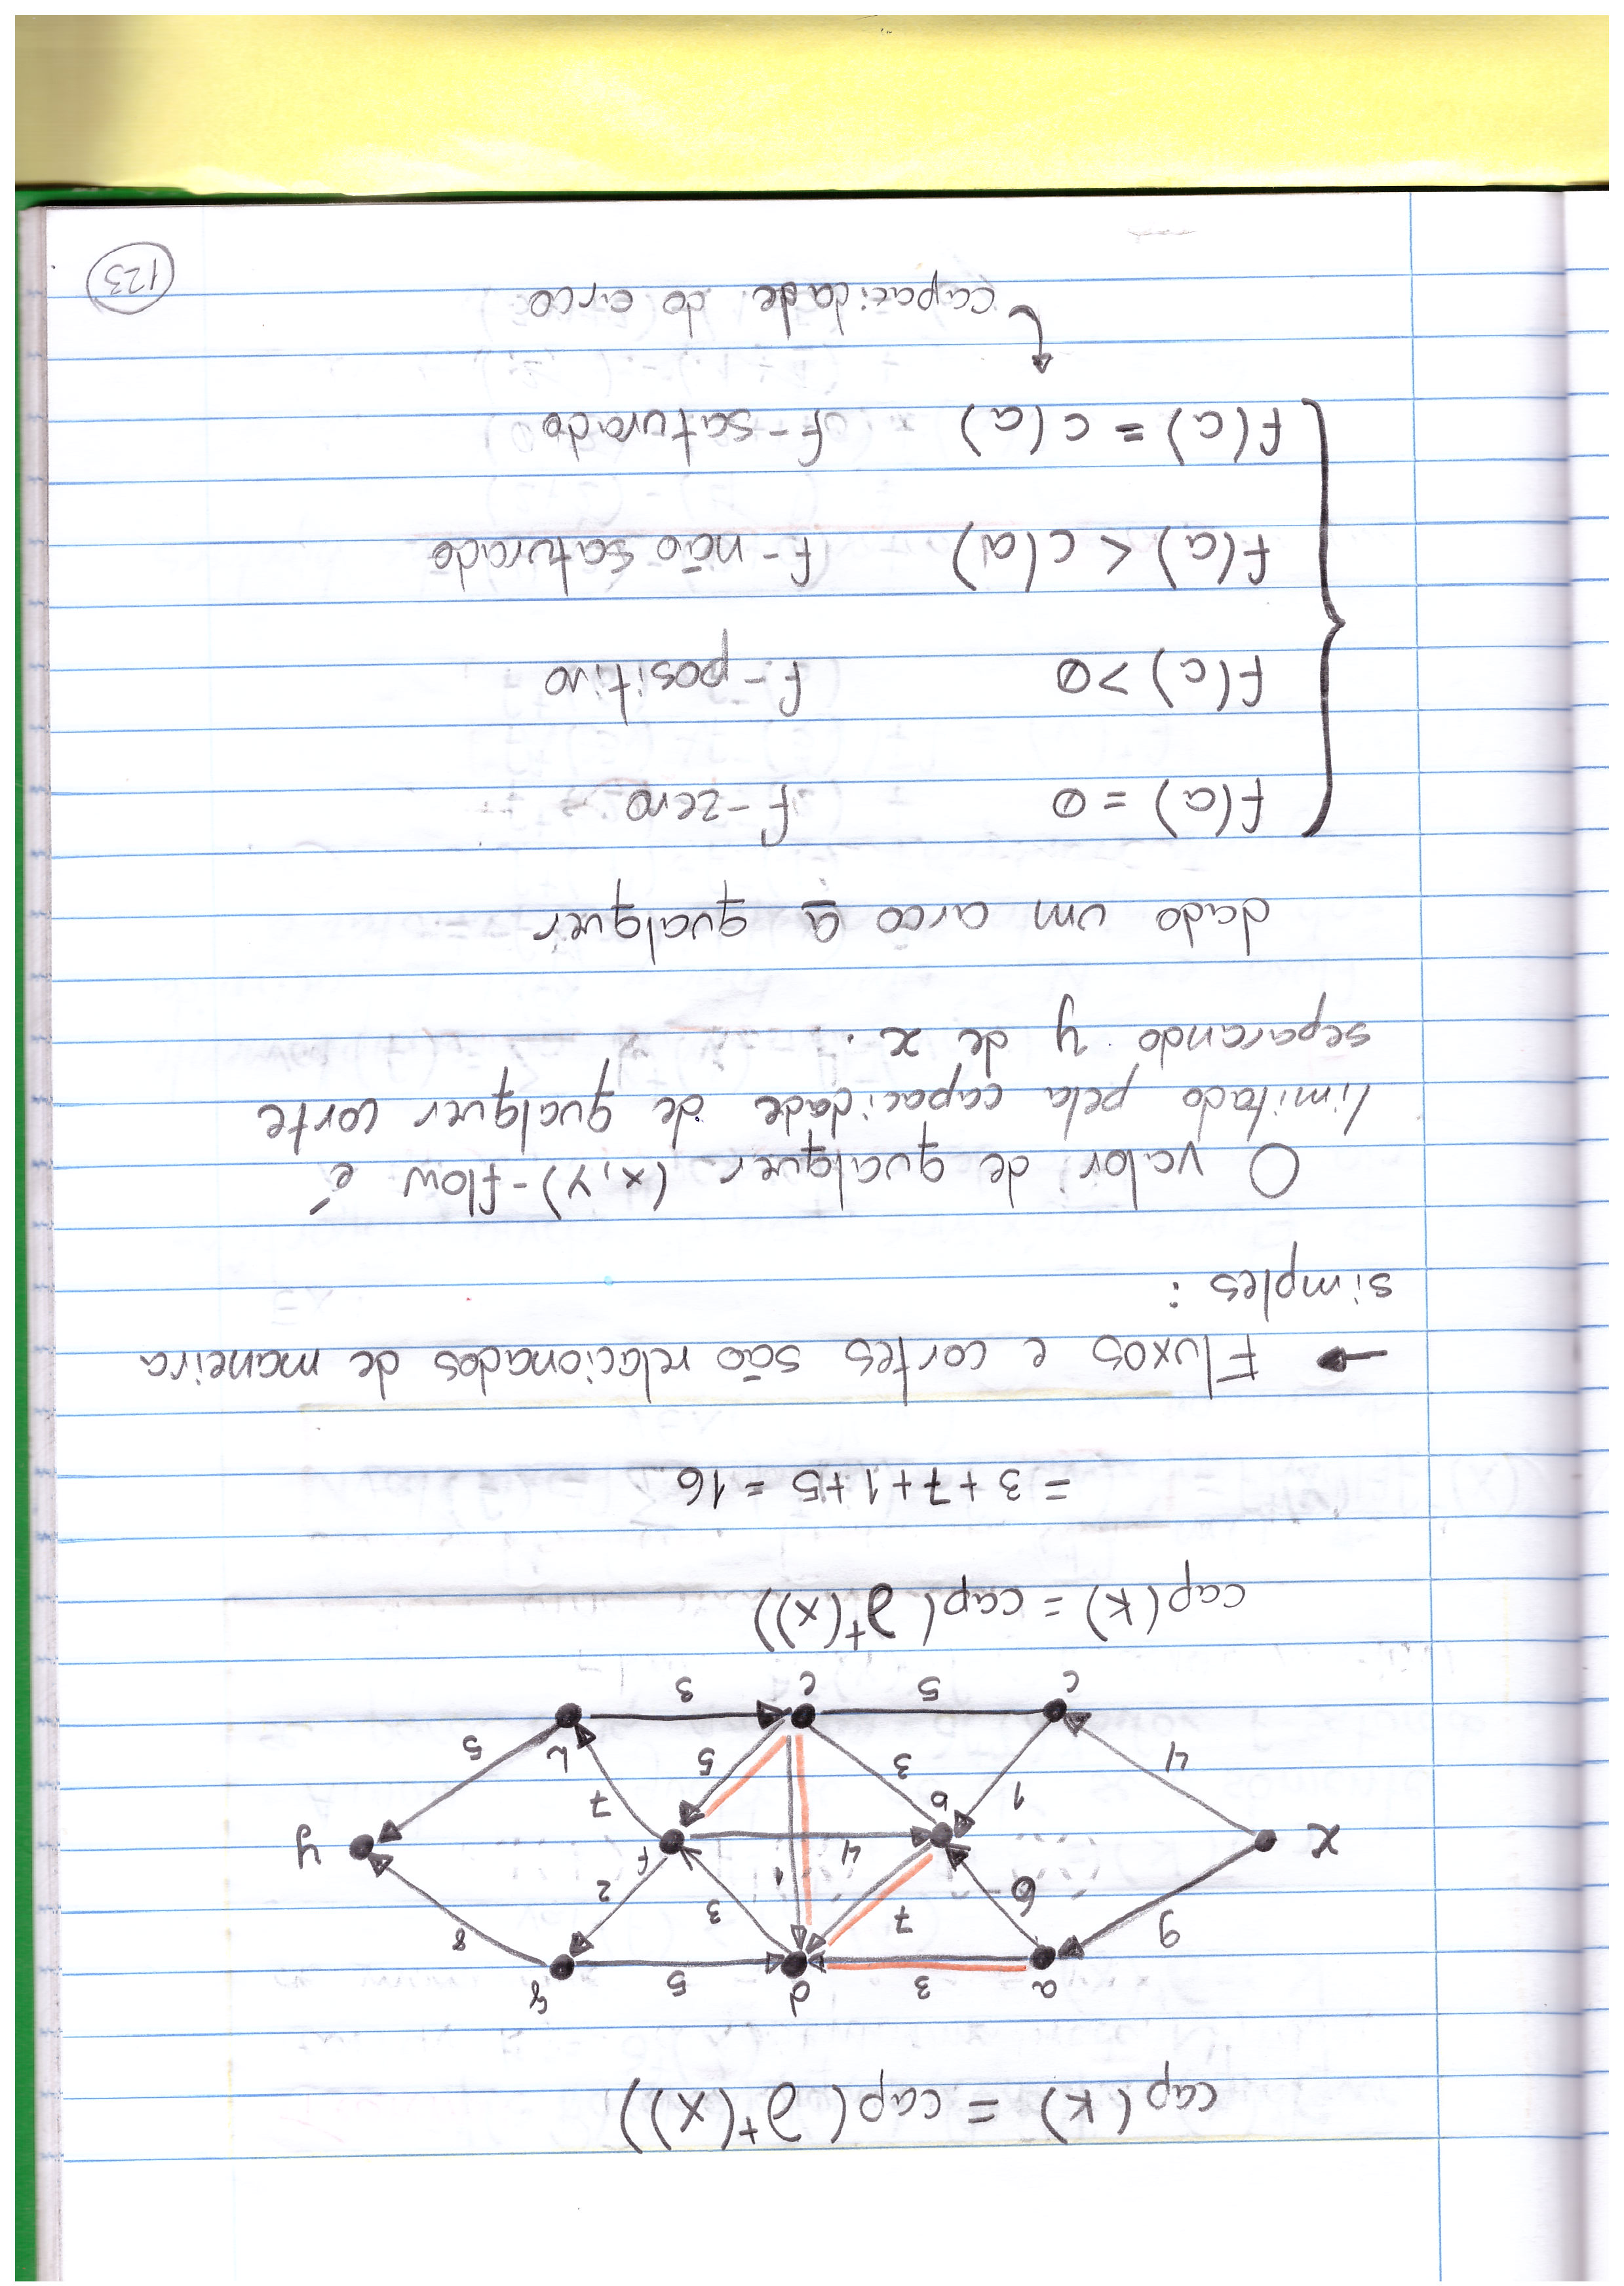 cap(k) = cap(∂⁺(x))
a 3 d 5 g
9 6 7 3 2 8
x 4 1 f y
b
4 1 3 5 7 h 5
c 5 e 3
cap(k) = cap(∂⁺(x))
= 3+7+1+5 = 16
→ Fluxos e cortes são relacionados de maneira
simples :
O valor de qualquer (x,y)-flow é
limitado pela capacidade de qualquer corte
separando y de x .
dado um arco a qualquer
f(a) = 0 f-zero
f(a) > 0 f-positivo
f(a) < c(a) f-não saturado
f(a) = c(a) f-saturado
capacidade do arco
123